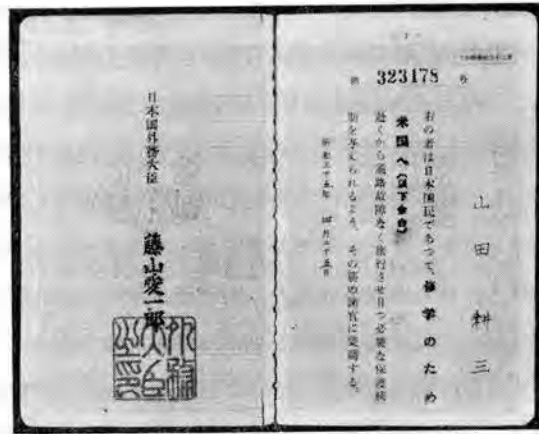 第 323178 号
山田耕三
右の者は日本国民であつて、修学のため
米国へ(以下余白)
赴くから通路故障なく旅行させ且つ必要な保護扶
助を与えられるよう、その筋の諸官に要請する。
昭和三十五年 四月二十五日
日本国外務大臣
藤山愛一郎
外務大臣之印